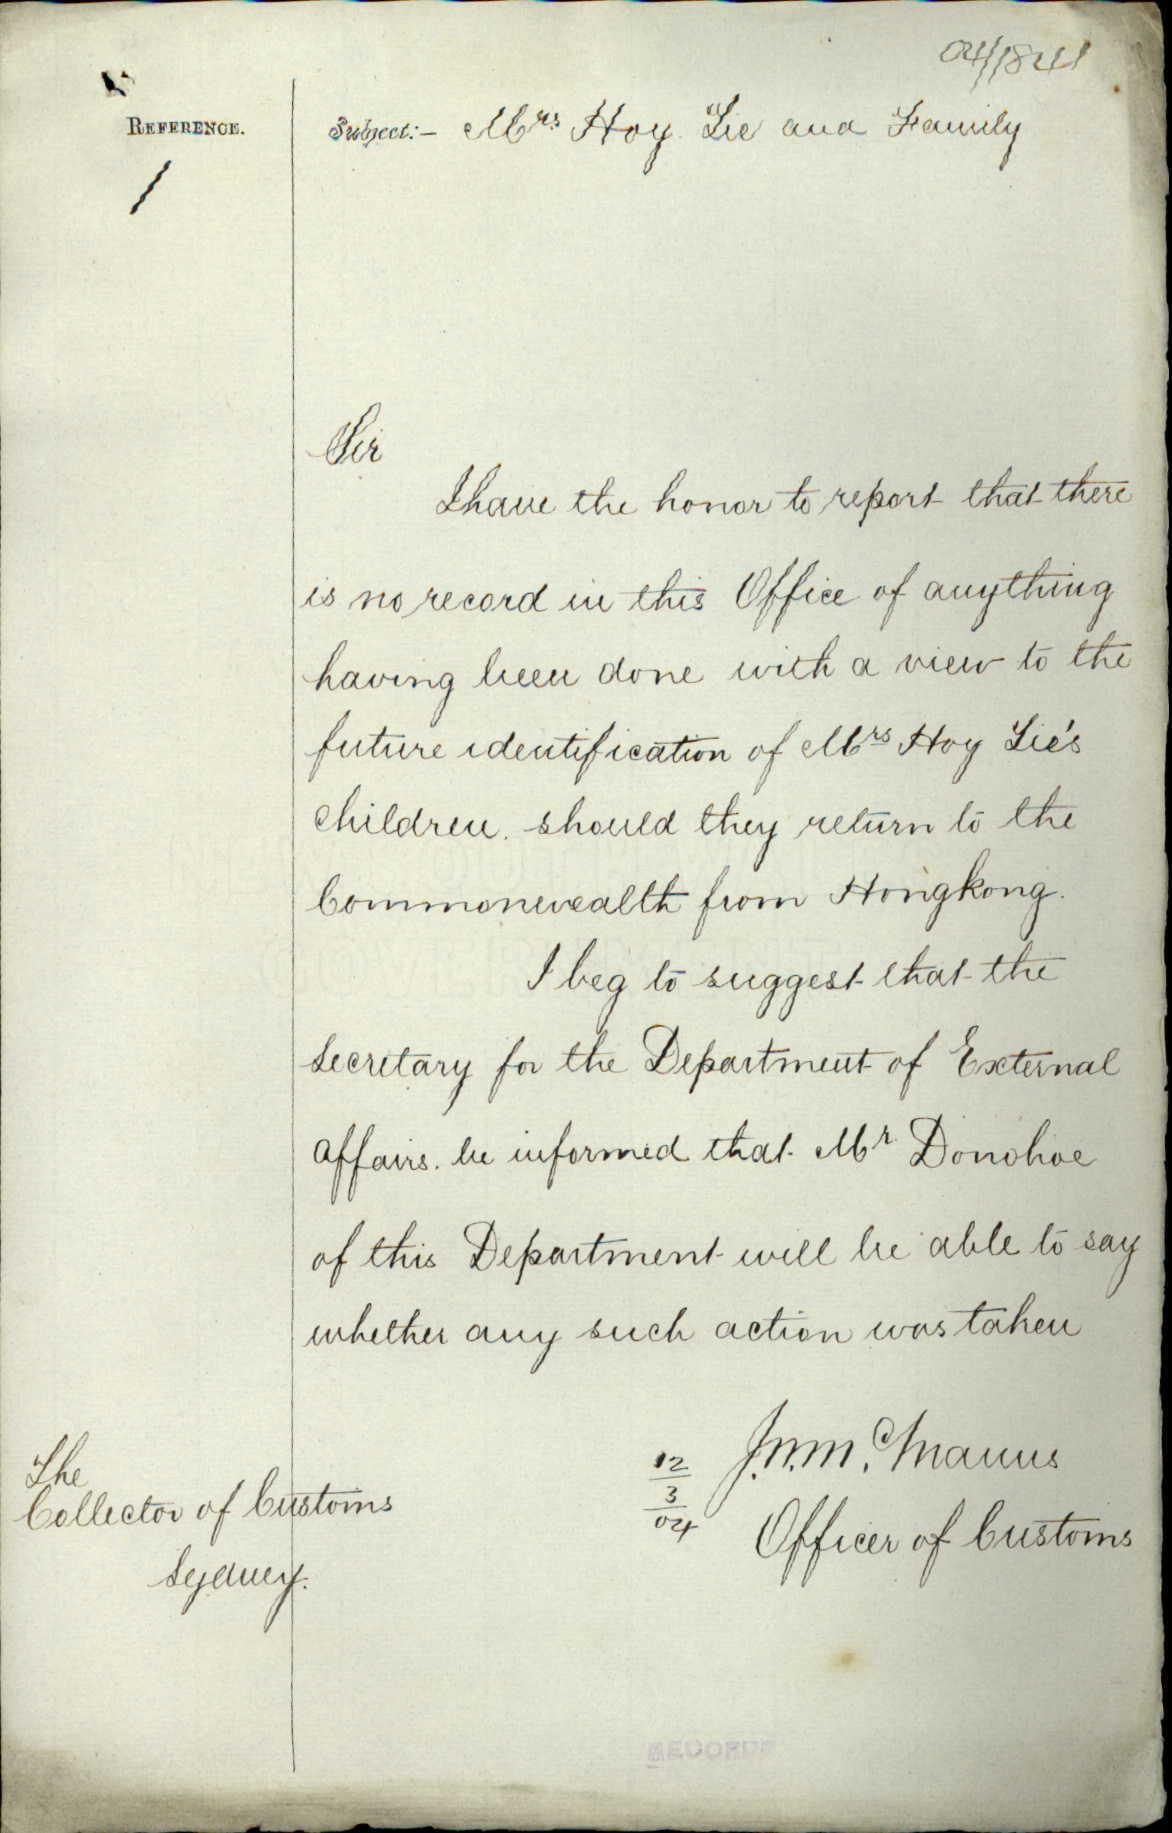 04/1841
REFERENCE.
Subject:- Mrs. Hoy Lie and Family
Sir
I have the honor to report that there
is no record in this Office of anything
having been done with a view to the
future identification of Mrs Hoy Lie's
Children. should they return to the
Commonwealth from Hongkong.
I beg to suggest that the
Secretary for the Department of External
Affairs. be informed that Mr Donohoe
of this Department will be able to say
whether any such action was taken
J.W.McManus
12/3/04
Officer of Customs
The
Collector of Customs
Sydney.
RECORDS